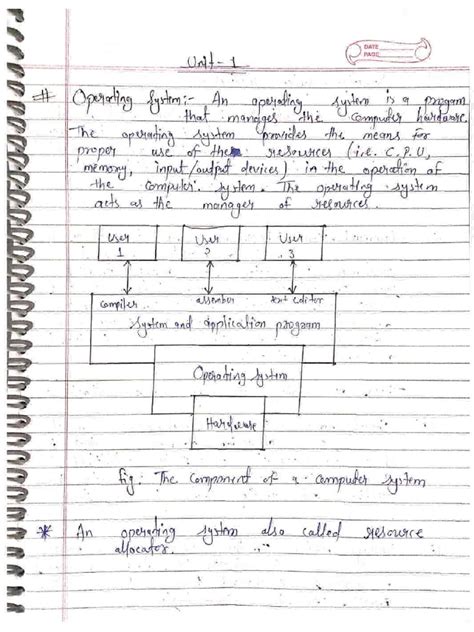 DATE
PAGE
Unit - 1
# Operating System:- An operating system is a program
that manages the Computer hardware.
The operating system provides the means for
proper use of the resources (i.e. C.P.U,
memory, input/output devices) in the operation of
the computer. System. The operating system
acts as the manager of resources.
User 1
User 2
User 3
Compiler assember text editor
System and application program
Operating System
Hardware
fig. The Component of a computer system
* An operating system also called resource
allocator.